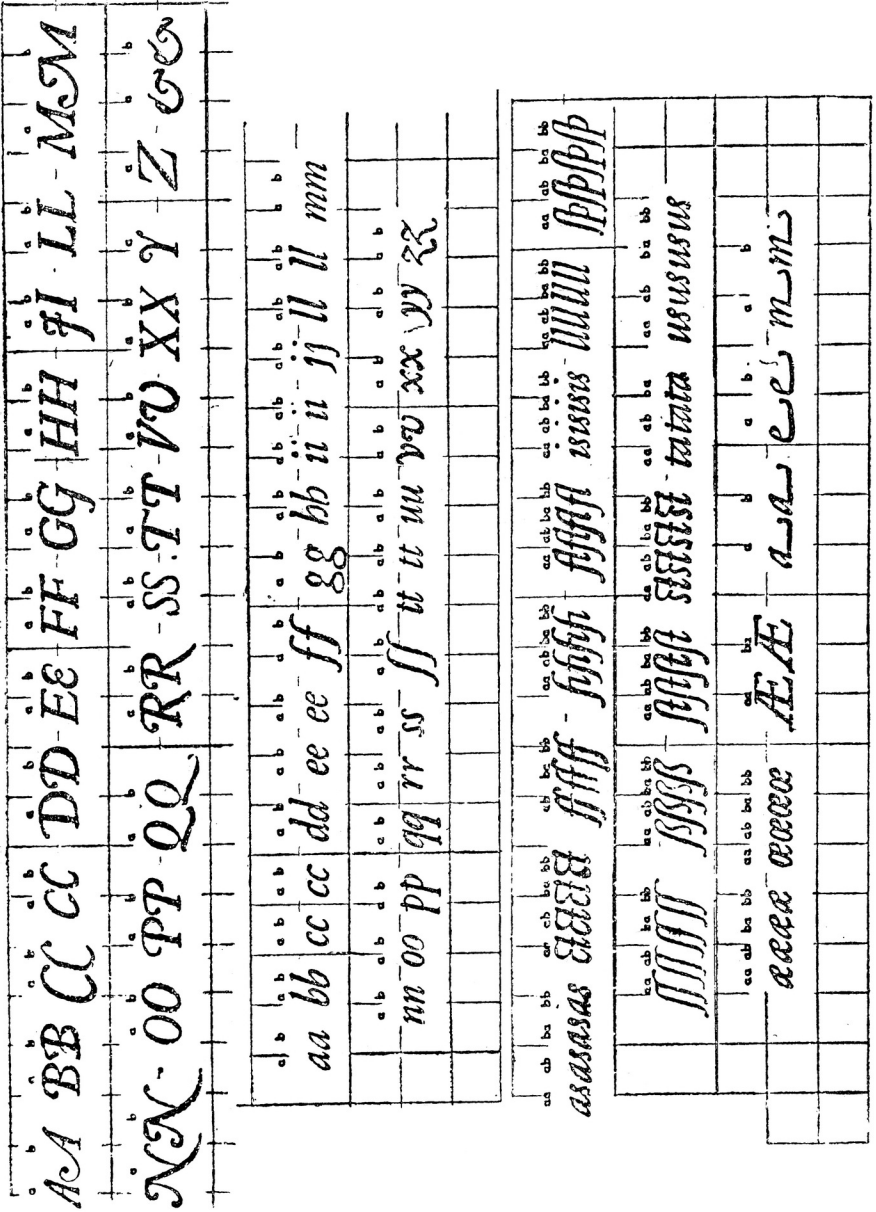 a b a b a b a b a b a b a b a b a b a b a b a b
AA BB CC CC DD EE FF GG HH JI LL MM
a b a b a b a b a b a b a b a b a b a a a b
NN - OO PP - QQ RR - SS TT - VV XX Y Z - &&
a b a b a b a b a b a b a b a b a b a b a b a b a b a b a b a b
aa bb cc cc dd ee ee ff gg hh ii ii jj ll ll mm
a b a b a b a b a b a b a b a b a b a b a b a b a b a b
nn oo pp qq rr ss ſſ tt tt uu vv xx yy zz
aa ab ba bb aa ab ba bb ab ba bb aa ab ba bb aa ab ba bb aa ab ba bb aa ab ba bb aa ab ba bb
asasasas ctctctct ffffff - fiﬁfifi flflflfl isisisis llllllll ſpſpſpſp
aa ab ba bb aa ab ba bb aa ab ba bb aa ab ba bb aa ab ba aa ab ba bb
ſſſſſſſſ ßßßß ſtſtſtſt stststst tatata usususus
aa ab ba bb aa ab ba bb aa ba a b a b a b
ææææ œœœœ ÆÆ aa ee mm